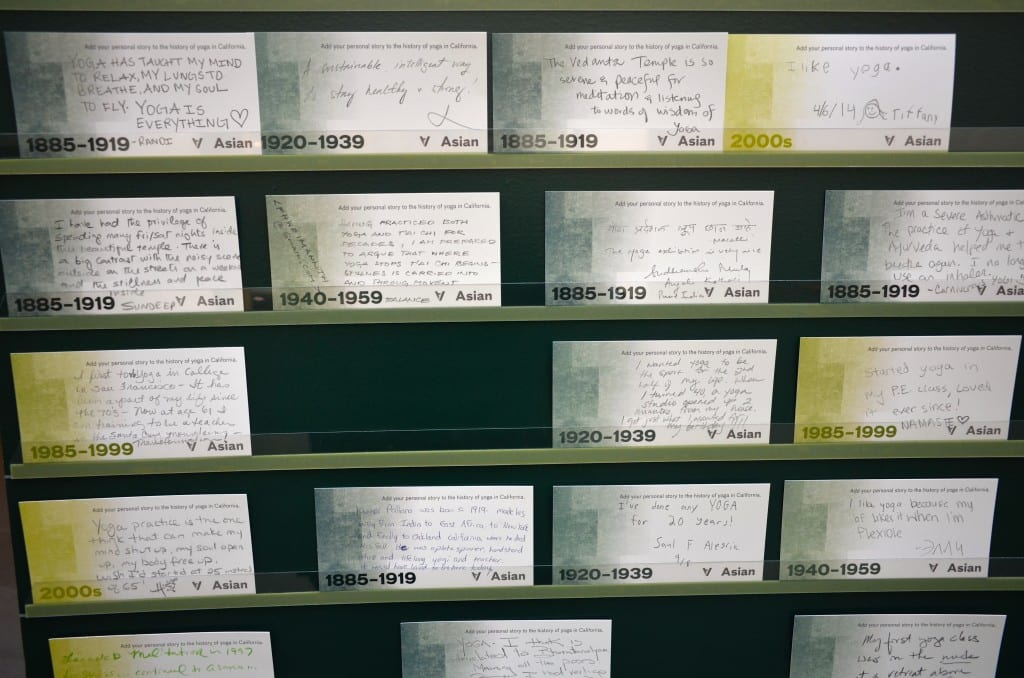 Add your personal story to the history of yoga in California.
YOGA HAS TAUGHT MY MIND
TO RELAX, MY LUNGS TO
BREATHE, AND MY SOUL
TO FLY. YOGA IS
EVERYTHING
-RANDI
1885–1919
Asian
Add your personal story to the history of yoga in California.
A sustainable, intelligent way
to stay healthy + strong!
1920–1939
Asian
Add your personal story to the history of yoga in California.
The Vedanta Temple is so
serene & peaceful for
meditation & listening
to words of wisdom of
Yoga
1885–1919
Asian
Add your personal story to the history of yoga in California.
I like yoga.
4/6/14 Tiffany
2000s
Asian
Add your personal story to the history of yoga in California.
I have had the privilege of
spending many fri/sat nights inside
this beautiful temple. There is
a big contrast with the noisy scene
outside on the streets on a weekend
and the stillness and peace
inside
SUNDEEP
1885–1919
Asian
Add your personal story to the history of yoga in California.
HAVING PRACTICED BOTH
YOGA AND TAI CHI FOR
DECADES, I AM PREPARED
TO ARGUE THAT WHERE
YOGA STOPS TAI CHI BEGINS–
STILLNESS IS CARRIED INTO
AND THROUGH MOVEMENT
BALANCE
1940–1959
Asian
Add your personal story to the history of yoga in California.
The yoga exhibition is very nice
India
1885–1919
Asian
Add your personal story to the history of yoga in C
I'm a Severe Asthmatic
The practice of Yoga &
Ayurveda helped me
breathe again. I no long
use an inhaler.
- Carnivorous Yogi
1885–1919
Asia
Add your personal story to the history of yoga in California.
I first took Yoga in College
in San Francisco - It has
been a part of my life since
the 70's - Now at age 61 I
am training to be a teacher
in the Santa Cruz mountains -
1985–1999
Asian
Add your personal story to the history of yoga in California.
I wanted yoga to be
the sport for the 2nd
half of my life. When
I turned 40, a yoga
studio opened up 2
minutes from my house.
I got just what I wanted for
my birthday!
1920–1939
Asian
Add your personal story to the history of yoga in California.
Started yoga in
my P.E. class, Loved
it ever since!
NAMASTE
1985–1999
Asian
Add your personal story to the history of yoga in California.
Yoga practice is the one
think that can make my
mind shut up, my soul open
up, my body free up.
Wish I'd started at 25 instead
of 65
2000s
Asian
Add your personal story to the history of yoga in California.
was born in 1919. made his
way from India to East Africa, to New York
and finally to Oakland California where he died
1885–1919
Asian
Add your personal story to the history of yoga in California.
I've done any YOGA
for 20 years!
Saul F Alegria
1920–1939
Asian
Add your personal story to the history of yoga in California.
I like yoga because my
bf likes it when I'm
flexible
1940–1959
Asian
Add your personal story to the history of yoga in California.
Meditation in 1997
Add your personal story to the history of yoga in California.
YOGA. I think is
Add your personal story to the history of yoga in California.
My first yoga class
was in the nude
at a retreat above